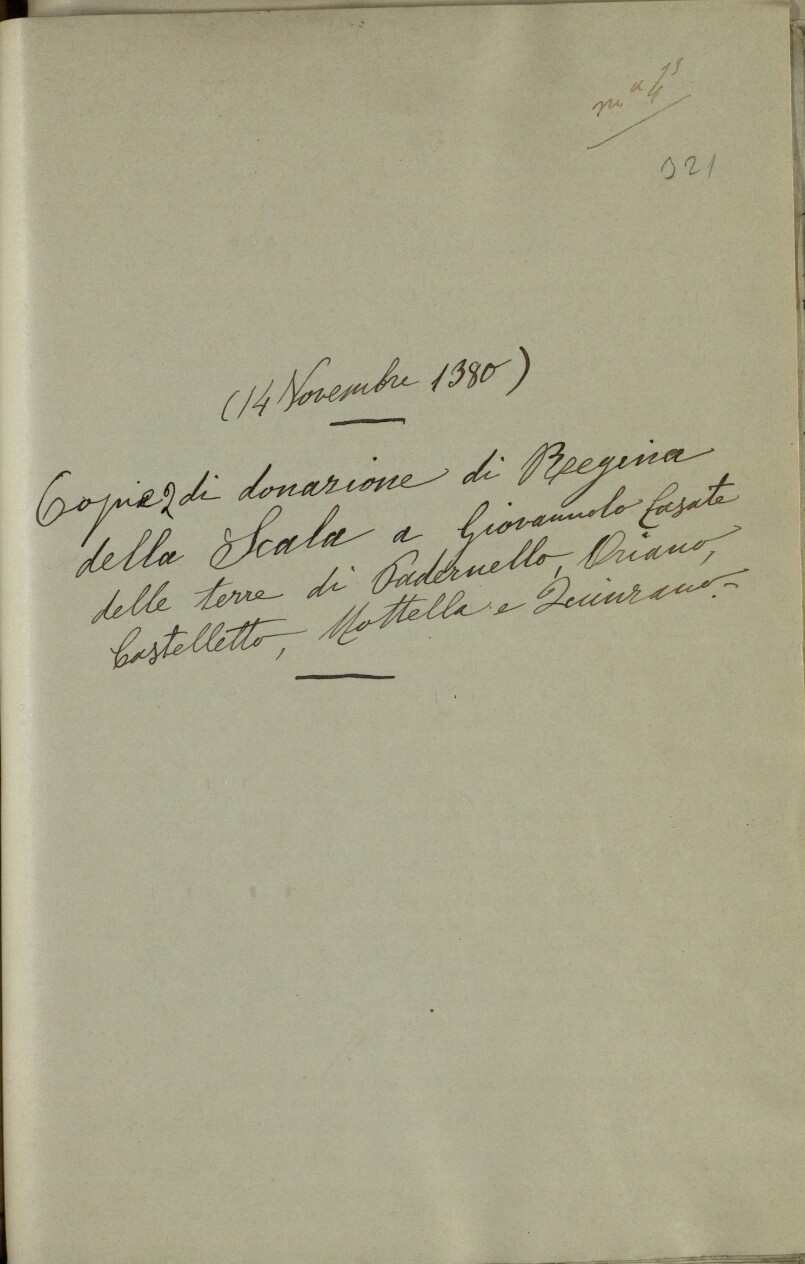 321
(14 Novembre 1380)
Copie 2 di donazione di Regina
della Scala a Giovannolo Casate
delle terre di Padernello, Oriano,
Castelletto, Mottella e Quinzano.-